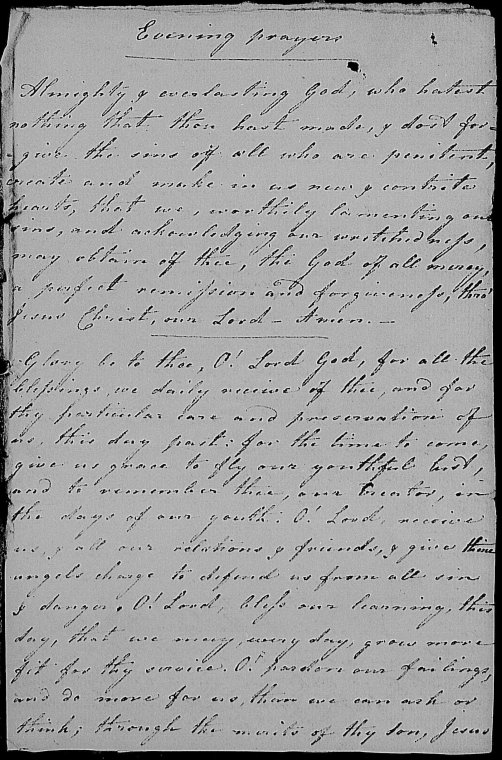 Evening prayers
Almighty & everlasting God, who hatest
nothing that thou hast made, & dost for-
-give the sins off all who are penitent,
create and make in us new & contrite
hearts, that we, worthily lamenting our
sins, and acknowledging our wretchedness,
may obtain of thee, the God of all mercy,
a perfect remission and forgiveness, thro'
Jesus Christ, our Lord - Amen. -
Glory be to thee, O! Lord God, for all the
blessings we daily receive of thee, and for
thy particular care and preservation of
us, this day past: for the time to come,
give us grace to fly our youthful lust,
and to remember thee, our Creator, in
the days of our youth: O! Lord, receive
us, & all our relations & friends, & give thine
angels charge to defend us from all sin
& danger. O! Lord, bless our learning, this
day, that we may, every day, grow more
fit for thy service. O! pardon our failings,
and do more for us, than we can ask or
think; through the merits of thy son, Jesus